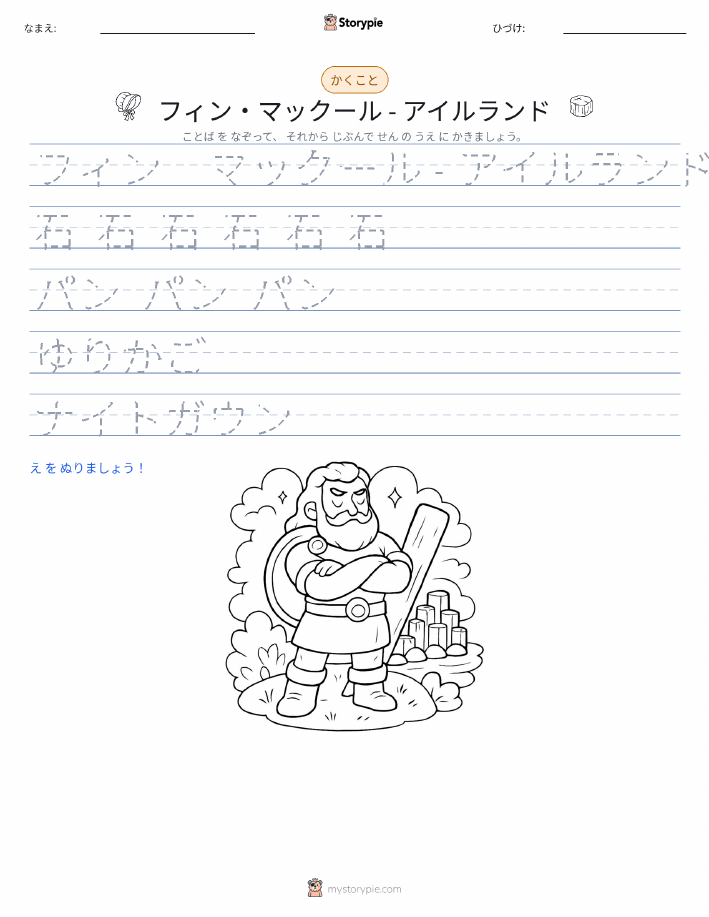 なまえ:
Storypie
ひづけ:
かくこと
フィン・マックール - アイルランド
ことば を なぞって、 それから じぶんで せん の うえ に かきましょう。
フィン マックール - アイルランド
石 石 石 石 石 石
パン パン パン
ゆりかご
ナイトガウン
え を ぬりましょう！
mystorypie.com